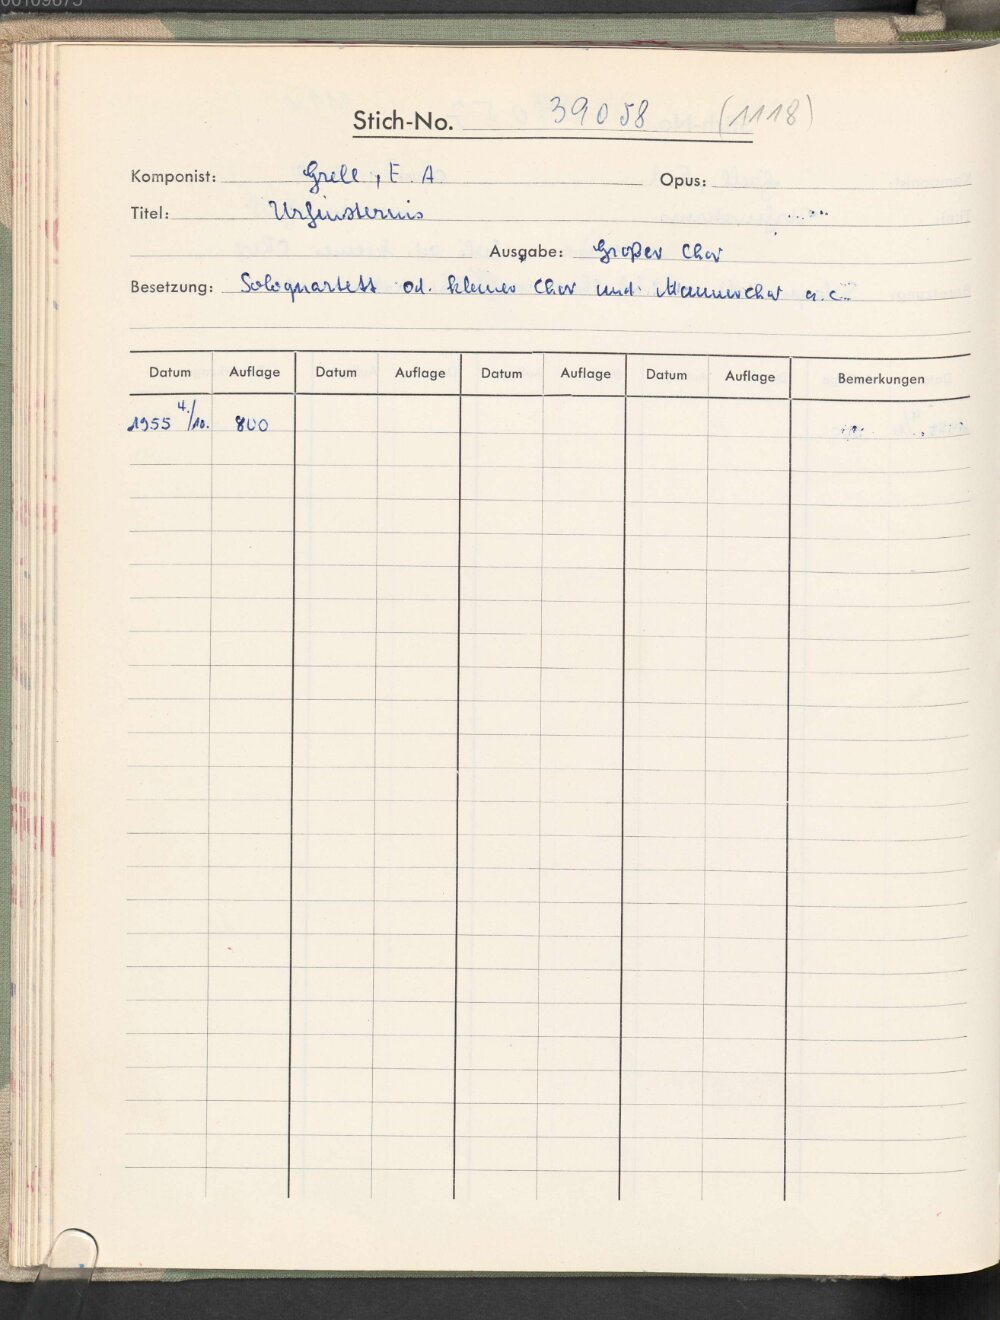 Stich-No. 39058 (1118)
Komponist: Grell, E A Opus:
Titel: Urfinsternis
Ausgabe: Großer Chor
Besetzung: Soloquartett od. kleiner Chor und Männerchor a.c.
Datum Auflage Datum Auflage Datum Auflage Datum Auflage Bemerkungen
1955 4./10. 800